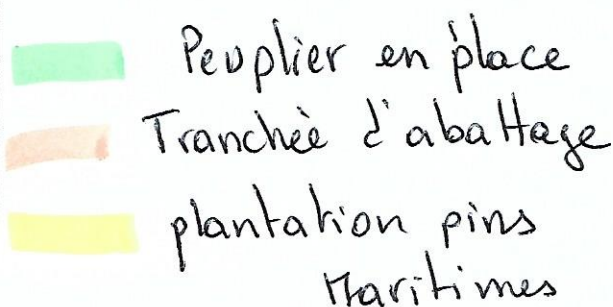 Peuplier en place
Tranchèe d'abattage
plantation pins
Maritimes